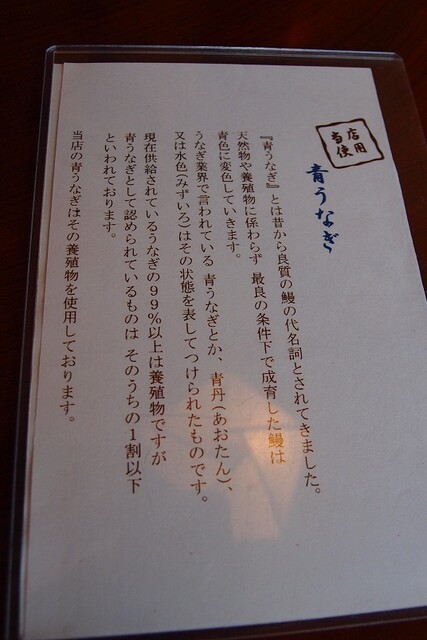 当店
使用
青うなぎ
『青うなぎ』とは昔から良質の鰻の代名詞とされてきました。
天然物や養殖物に係わらず 最良の条件下で成育した鰻は
青色に変色していきます。
うなぎ業界で言われている 青うなぎとか、青丹(あおたん)、
又は水色(みずいろ)はその状態を表してつけられたものです。
現在供給されているうなぎの99%以上は養殖物ですが
青うなぎとして認められているものは そのうちの1割以下
といわれております。
当店の青うなぎはその養殖物を使用しております。